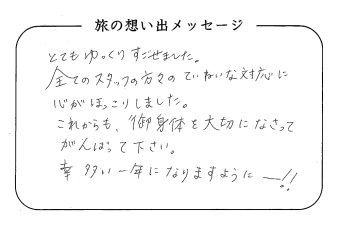 旅の想い出メッセージ
とてもゆっくりすごせました。
全てのスタッフの方々のていねいな対応に
心がほっこりしました。
これからも、御身体を大切になさって
がんばって下さい。
幸多い一年になりますように―!!